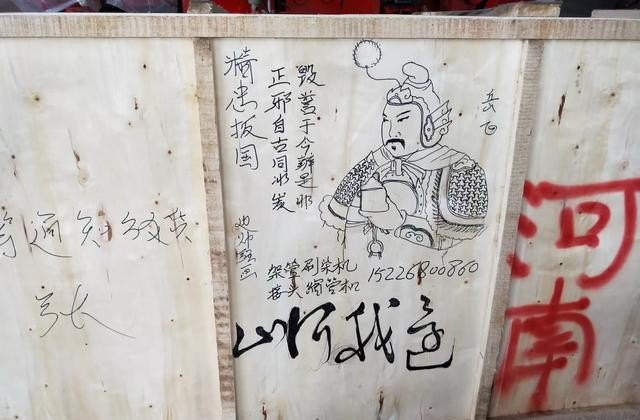 等通知發货
张
岳飞
毁誉于今辨是非
正邪自古同冰炭
精忠报国
架管刷染机 15226800860
接头缩管机
還我河山
河南